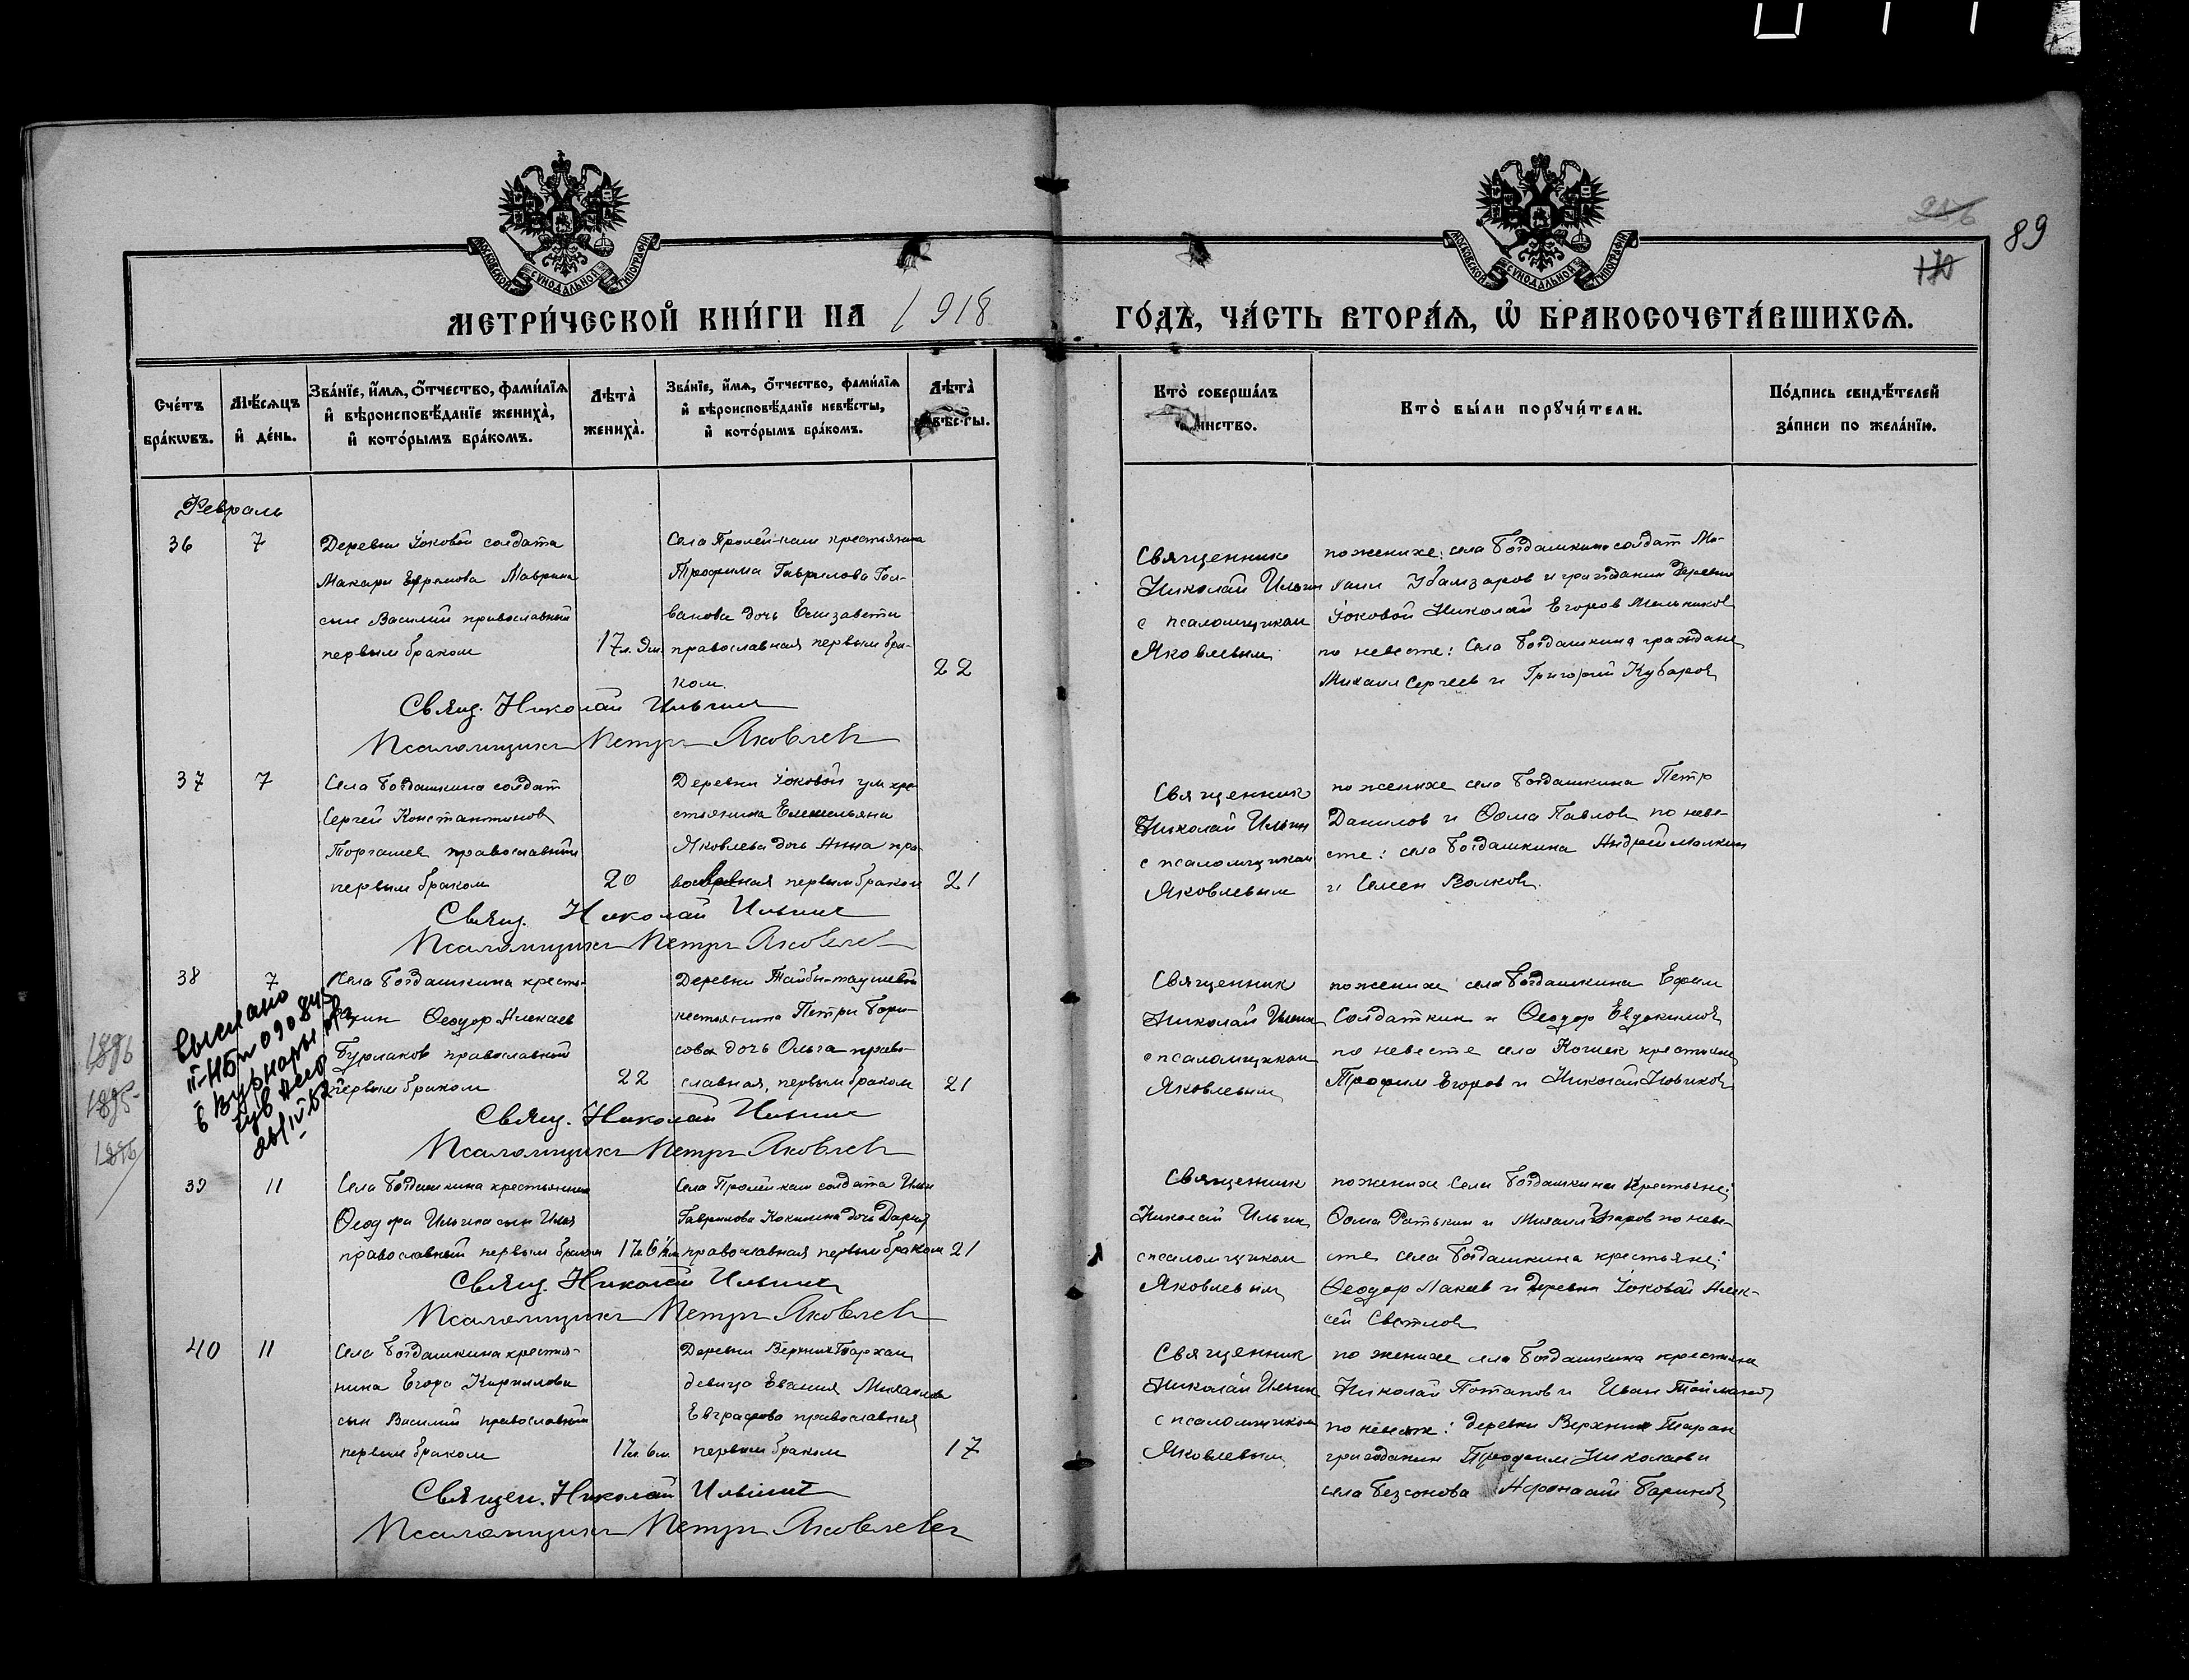 МОСКОВСКОЙ СУНОДАЛЬНОЙ ТИПОГРАФІИ
МОСКОВСКОЙ СУНОДАЛЬНОЙ ТИПОГРАФІИ
89
МЕТРИ́ЧЕСКОЙ КНИ́ГИ НА 1918 ГО́ДЪ, ЧА́СТЬ ВТОРА́Я, Ѡ БРАКОСОЧЕТА́ВШИХСЯ.
Сче́тъ бра́кѡвъ.
Мѣ́сяцъ и де́нь.
Зва́нїе, и́мя, о́тчество, фами́лїя и вѣроисповѣ́данїе жениха̀, и кото́рымъ бра́комъ.
Лѣта̀ жениха̀.
Зва́нїе, и́мя, о́тчество, фами́лїя и вѣроисповѣ́данїе невѣ́сты, и кото́рымъ бра́комъ.
Лѣта̀ невѣ́сты.
Кто̀ соверша́лъ таинство.
Кто̀ бы́ли порꙋчи́тели.
По́дпись свидѣ́телей за́писи по жела́нїю.
Февраль
36
7
Деревни Іоковой солдата
Макара Ефремова Маврина
сын Василий православный
первым браком
17л. 9м.
Села Пролей-каши крестьянина
Трофима Гаврилова Гол-
ванова дочь Елизавета
православная первым бра-
ком.
22
Священник
Николай Ильин
с псаломщиком
Яковлевым
по женихе: села Богдашкина солдат Ми-
хаил Убамзаров и гражданин деревни
Іоковой Николай Егоров Мельников
по невесте: Села Богдашкина граждане
Михаил Сергеев и Григорий Кубаров
Свящ. Николай Ильин
Псаломщикъ Петръ Яковлевъ
37
7
Села Богдашкина солдат
Сергей Константинов
Торгашев православный
первым браком
20
Деревни Іоковой ум. кре-
стьянина Емельяна
Яковлева дочь Анна пра-
вославная первым браком
21
Священник
Николай Ильин
с псаломщиком
Яковлевым
по женихе села Богдашкина Петр
Данилов и Фома Павлов по неве-
сте: села Богдашкина Андрей Молкин
и Семен Волков.
Свящ. Николай Ильин
Псаломщикъ Петръ Яковлевъ
38
7
Села Богдашкина кресть-
янин Феодор Алексаев
Бурлаков православный
первым браком
22
Деревни Тайбы-таушевой
кестьянина Петра Бори-
сова дочь Ольга право-
славная, первым браком
21
Священник
Николай Ильин
с псаломщиком
Яковлевым
по женихе села Богдашкина Ефим
Солдаткин и Феодор Евдокимов
по невесте села Кошек крестьяне
Трофим Егоров и Николай Новиков
выслано
II-НБ № 090845
в Вурнары
Чув Асср
28/IV-52
1896
1895
1896
Свящ. Николай Ильин
Псаломщикъ Петръ Яковлевъ
39
11
Села Богдашкина крестьянина
Феодора Ильина сын Илья
православный первым браком
17л. 6½м.
Села Пролей-каши солдата Ильи
Гаврилова Кокшина дочь Дарья
православная первым браком
21
Священник
Николай Ильин
с псаломщиком
Яковлевым
по женихе Села Богдашкина крестьяне:
Фома Ратькин и Михаил Узаров по неве-
сте села Богдашкина крестьяне:
Феодор Макеев и деревни Іоковой Алек-
сей Светлов
Свящ. Николай Ильин
Псаломщикъ Петръ Яковлевъ
40
11
Села Богдашкина крестья-
нина Егора Кириллова
сын Василий православный
первым браком
17л. 6м.
Деревни Верхних Тархан
девица Евгения Михайлова
Евграфова православная
первым браком
17
Священник
Николай Ильин
с псаломщиком
Яковлевым
по женихе села Богдашкина крестьяне
Николай Потапов и Иван Тойманов
по невесте: деревни Верхних Таран
гражданин Трофим Николаев и
села Безсонова Афонасий Баринов
Священ. Николай Ильин
Псаломщикъ Петръ Яковлевъ